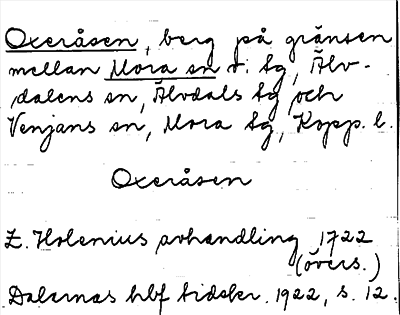 Oxeråsen, berg på gränsen
mellan Mora sn o. tg, Älv-
dalens sn, Älvdals tg och
Venjans sn, Mora tg, Kopp. l.
Oxeråsen
E. Holenius avhandling 1722
(övers.)
Dalarnas hbf tidskr. 1922, s. 12.